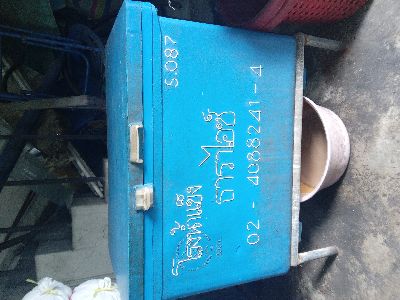 S.087
โรงน้ำแข็ง
ธาราไอซ์
02 - 4088241 - 4